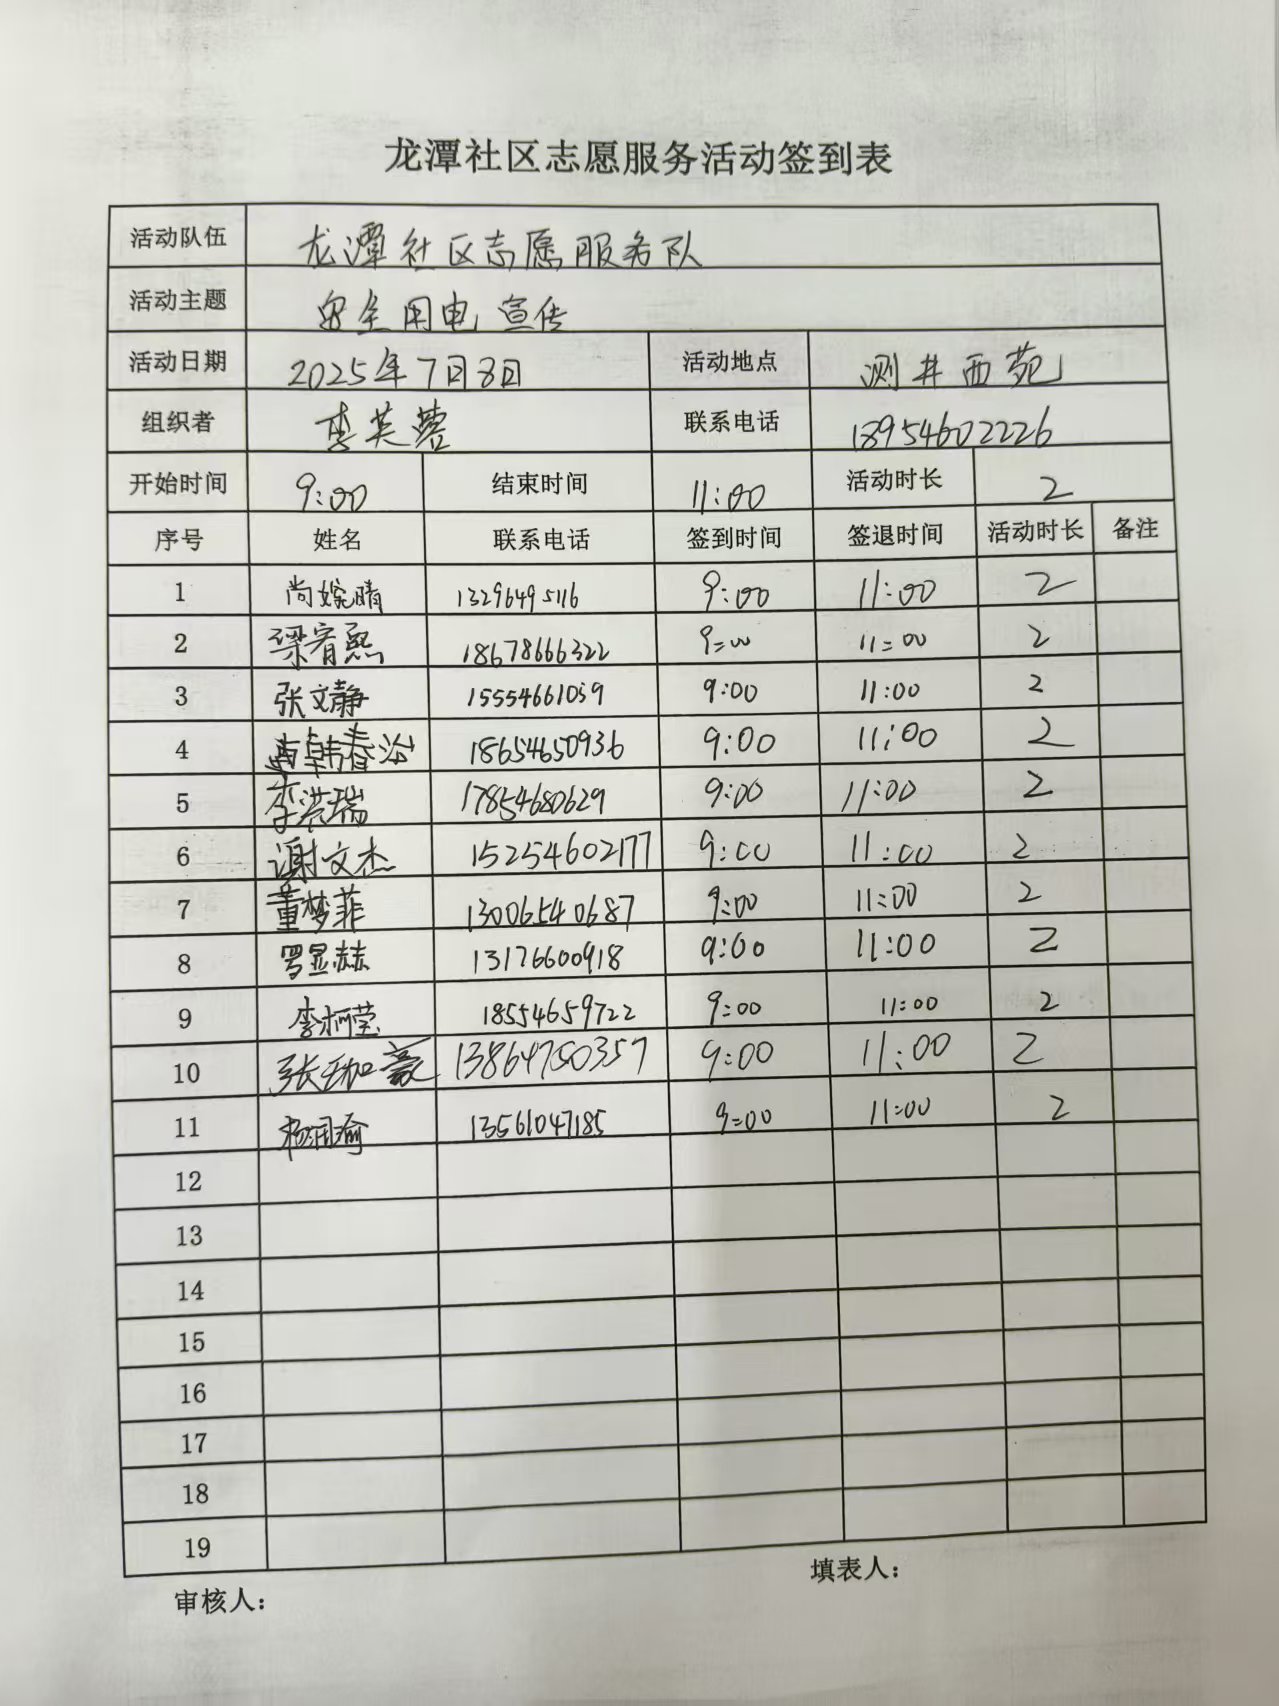 龙潭社区志愿服务活动签到表
活动队伍 龙潭社区志愿服务队
活动主题 安全用电宣传
活动日期 2025年7月8日 活动地点 测井西苑
组织者 李芙蓉 联系电话 18954602226
开始时间 9:00 结束时间 11:00 活动时长 2
序号 姓名 联系电话 签到时间 签退时间 活动时长 备注
1 尚婉晴 13296495116 9:00 11:00 2
2 梁宥熙 18678666322 9:00 11:00 2
3 张文静 15554661059 9:00 11:00 2
4 韩春汾 18654650936 9:00 11:00 2
5 李洪瑞 17854680629 9:00 11:00 2
6 谢文杰 15254602177 9:00 11:00 2
7 董梦菲 13006540687 9:00 11:00 2
8 罗显赫 13176600918 9:00 11:00 2
9 李柯莹 18554659722 9:00 11:00 2
10 张珈豪 13864750357 9:00 11:00 2
11 杨润瑜 13561047185 9:00 11:00 2
12
13
14
15
16
17
18
19
审核人： 填表人：